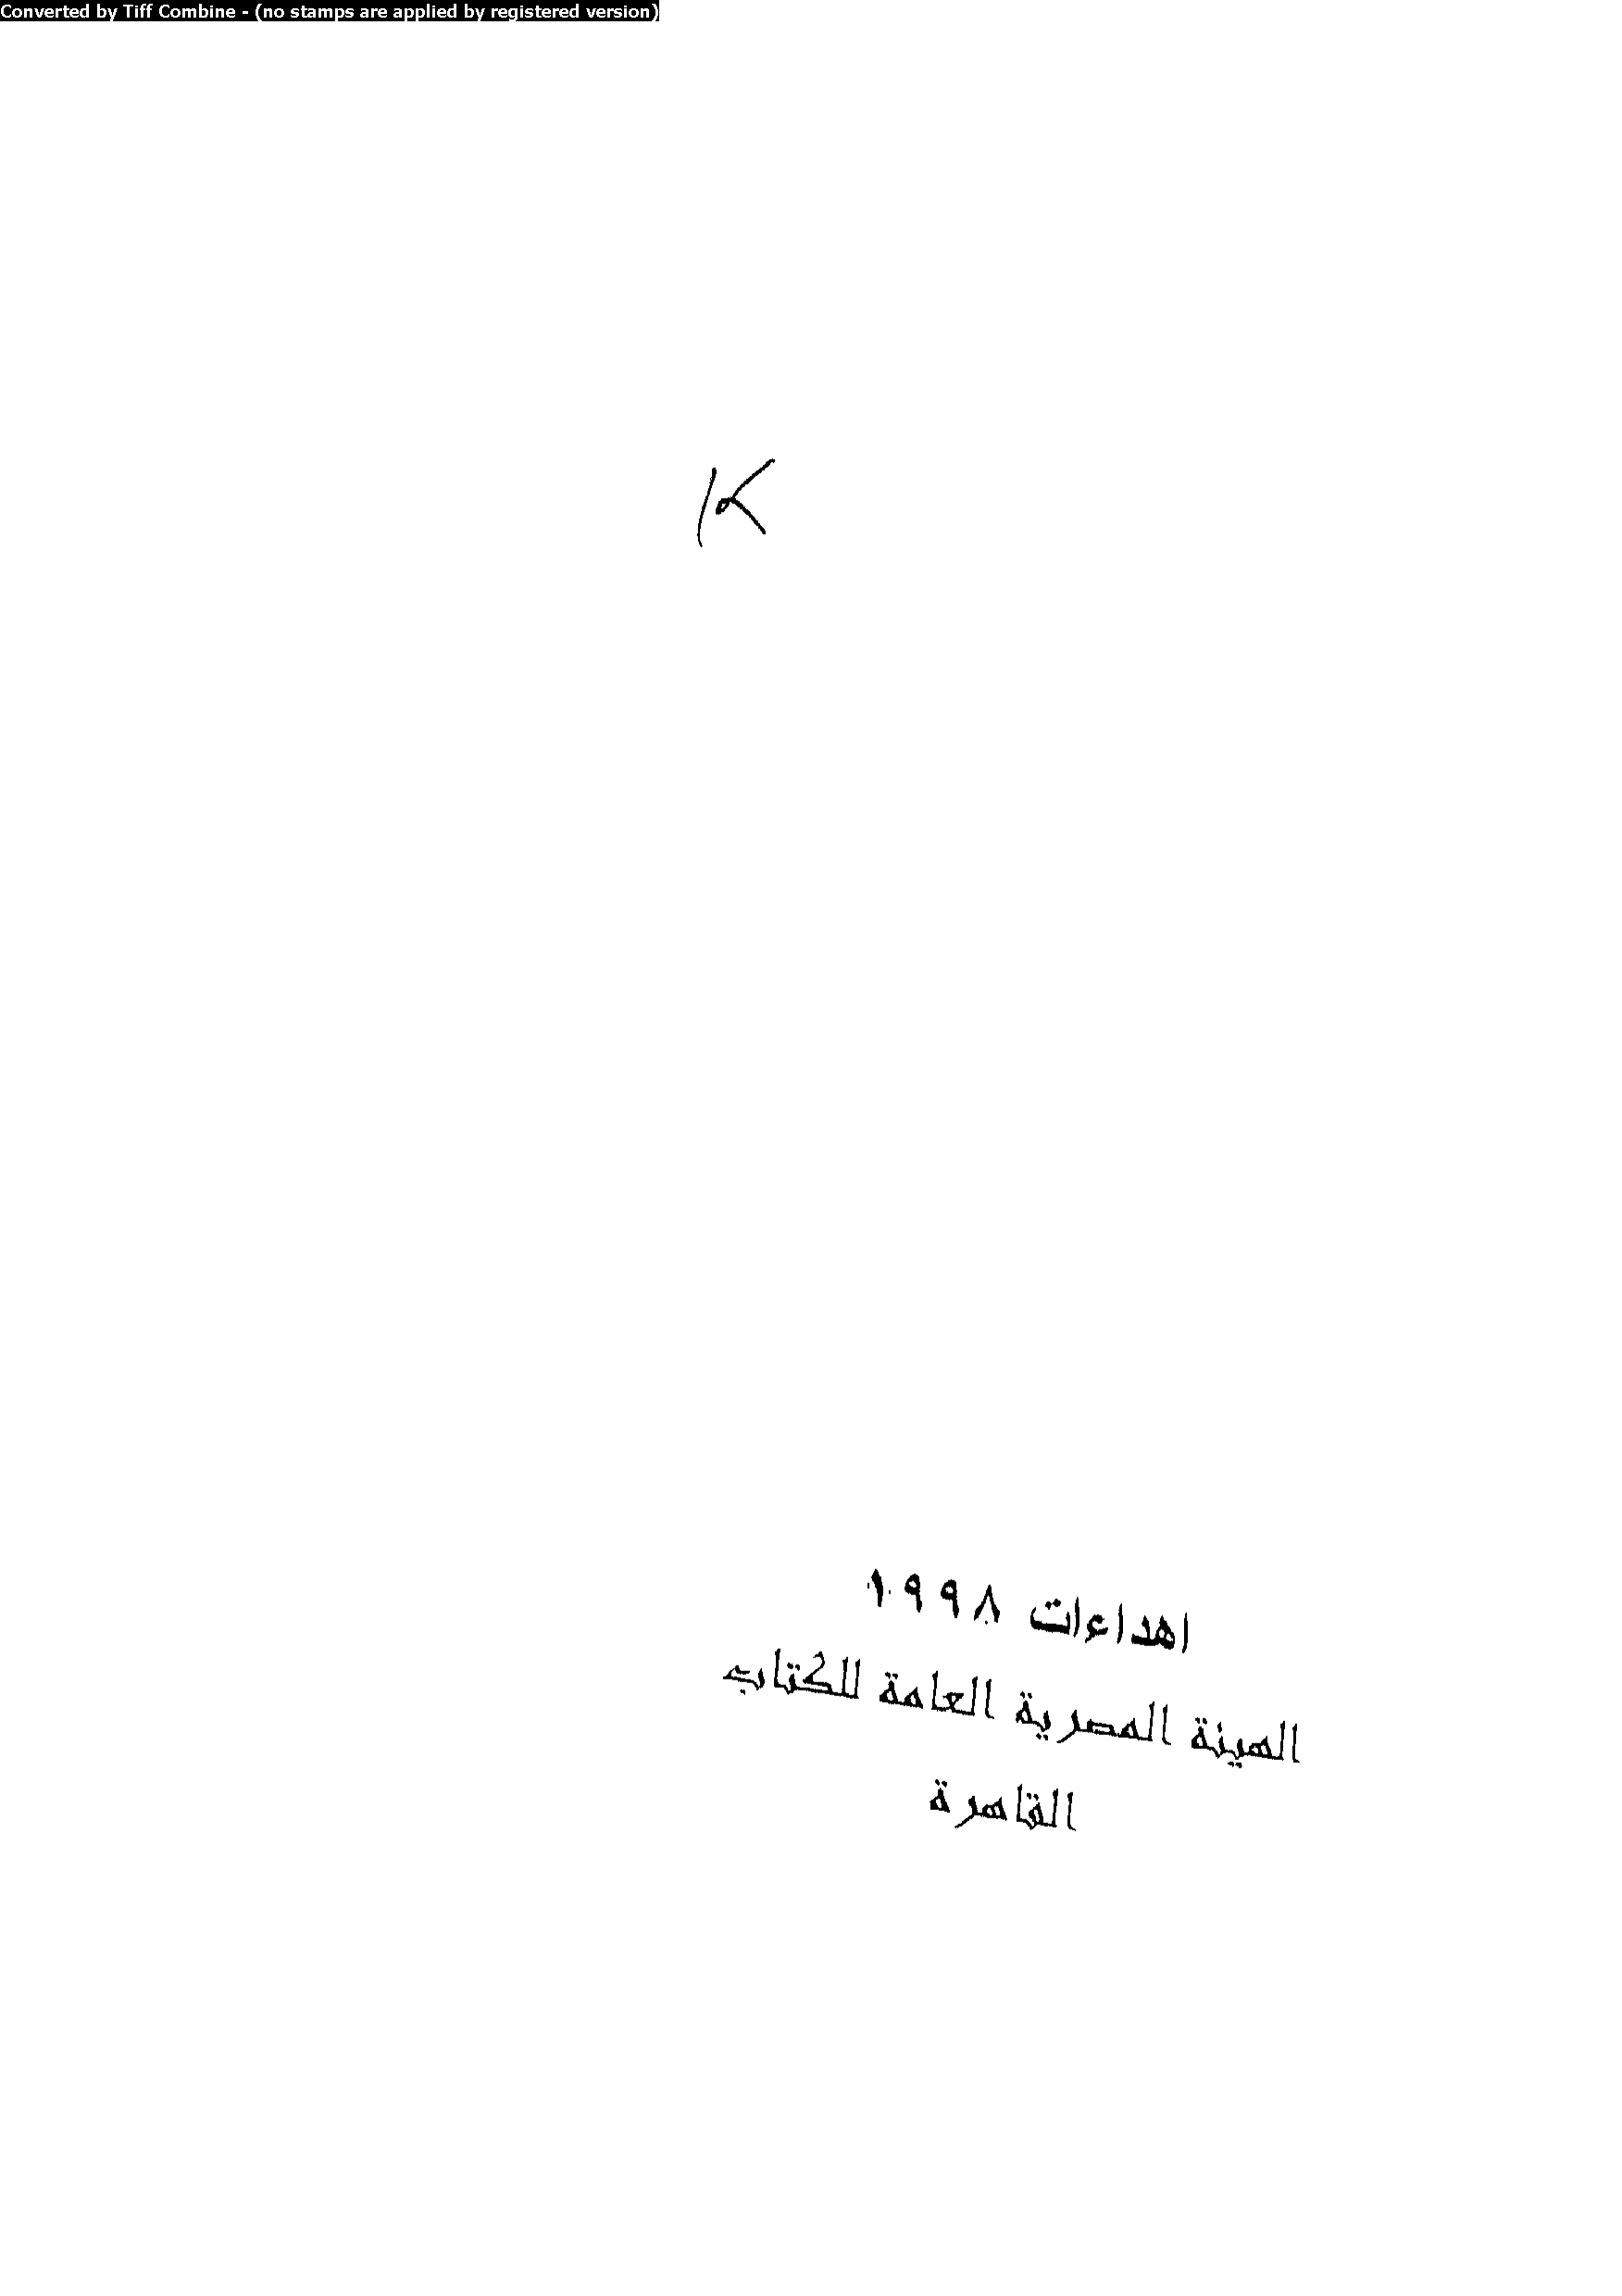 Converted by Tiff Combine - (no stamps are applied by registered version)
K
اهداءات ١٩٩٨
الهيئة المصرية العامة للكتاب
القاهرة